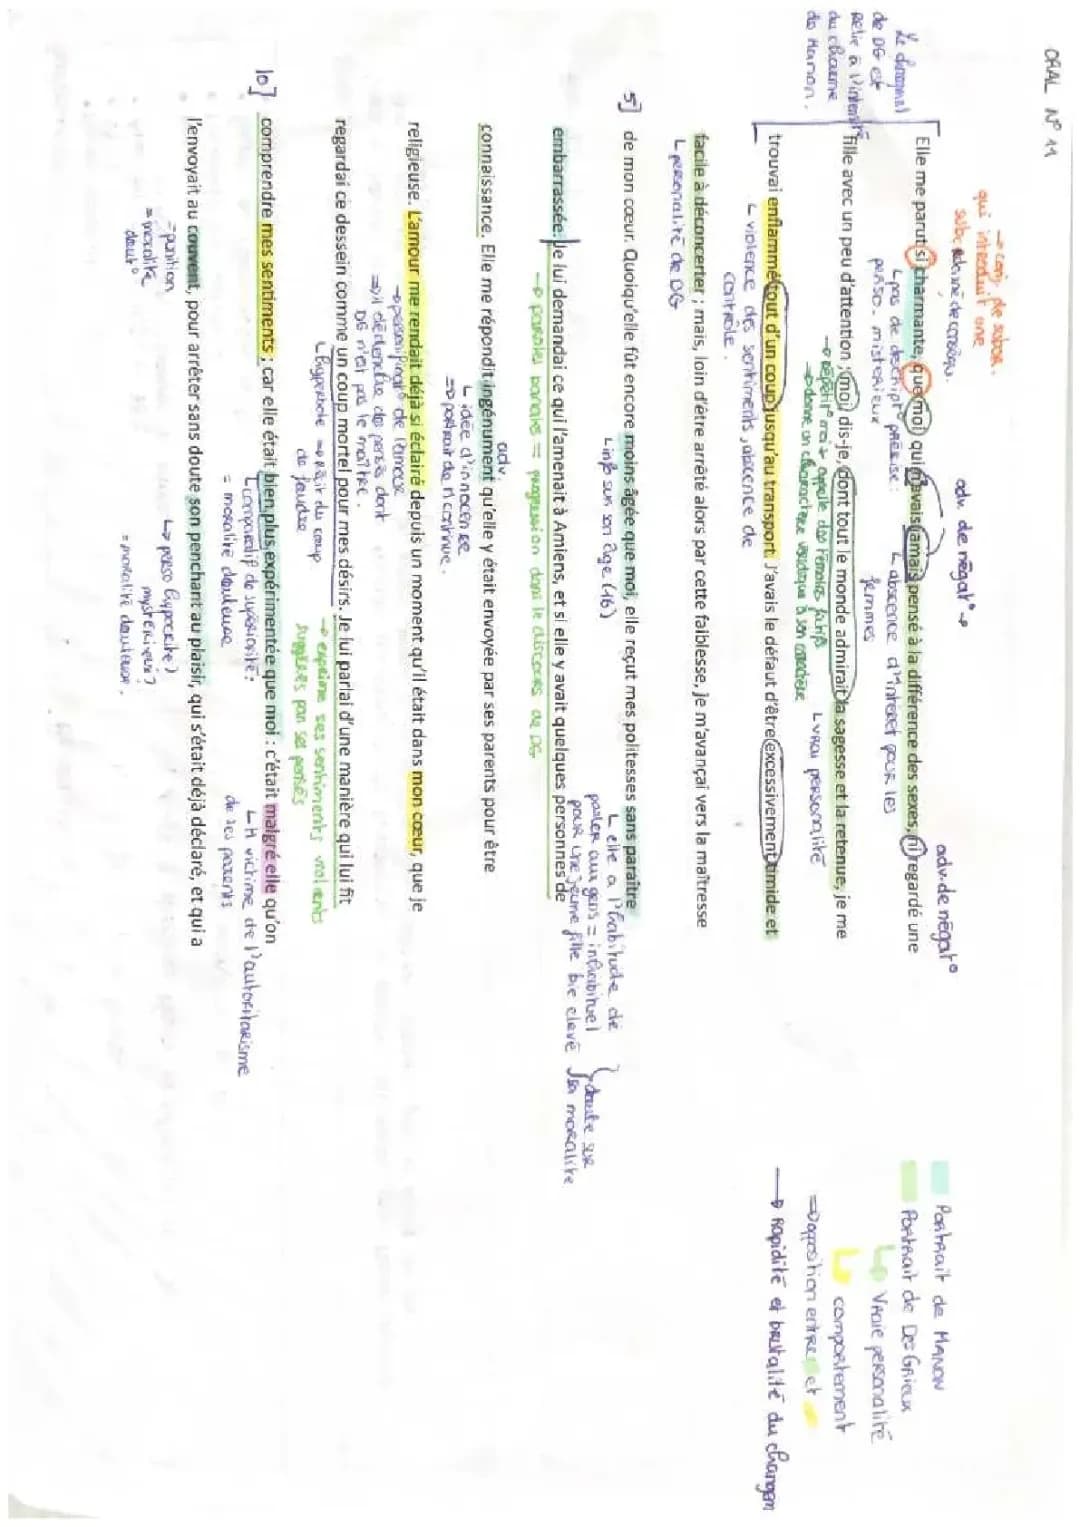 ORAL N° 11
→ conj de subor.
qui introduit une
sub
adv. de négat° →
adv. de négat°
Portrait de MANON
Portrait de Des Grieux
↳ Vraie personalité
↳ comportement
⇒ opposition entre et
→ Rapidité et brutalité du changem
Le
de DG est
Relié à l'intensité
du charme
de Manon.
Elle me parut si charmante, que moi, qui n'avais jamais pensé à la différence des sexes, ni regardé une
↳ pas de descript° précise :
perso. misterieux
↳ abscence d'intéret pour les
femmes
fille avec un peu d'attention ; moi, dis-je, dont tout le monde admirait la sagesse et la retenue, je me
→ répétit° moi + appelle des témoins
→ donne un charactère véridique à son caractère
↳ vrai personalité
trouvai enflammé tout d'un coup jusqu'au transport. J'avais le défaut d'être excessivement timide et
↳ violence des sentiments, abscence de
contrôle.
facile à déconcerter ; mais, loin d'être arrêté alors par cette faiblesse, je m'avançai vers la maîtresse
↳ personalité de DG
5] de mon cœur. Quoiqu'elle fût encore moins âgée que moi, elle reçut mes politesses sans paraître
↳ info sur son âge (16)
↳ elle a l'habitude de
parler aux gens = inhabituel
pour une jeune fille bie elevé
} doute sur
sa moralité
embarrassée. Je lui demandai ce qui l'amenait à Amiens, et si elle y avait quelques personnes de
→ paroles = progression dans le discours de DG
connaissance. Elle me répondit ingénument qu'elle y était envoyée par ses parents pour être
adv.
↳ idée d'innocence
⇒ portrait de M continue.
religieuse. L'amour me rendait déjà si éclairé depuis un moment qu'il était dans mon cœur, que je
→ personificat° de l'amour
⇒ il déclenche des pensés dont
DG n'est pas le maître.
regardai ce dessein comme un coup mortel pour mes désirs. Je lui parlai d'une manière qui lui fit
↳ hyperbole ⇒ récit du coup
de foudre
→ exprime ses sentiments violents
suggérés par ses pensés
10] comprendre mes sentiments ; car elle était bien plus expérimentée que moi : c'était malgré elle qu'on
↳ comparatif de supériorité :
= moralité douteuse
↳ M victime de l'autoritarisme
de ses parents
l'envoyait au couvent, pour arrêter sans doute son penchant au plaisir, qui s'était déjà déclaré, et qui a
= punition
= moralité
↳ perso hypocrite)
mystérieux ?
= moralité douteuse.